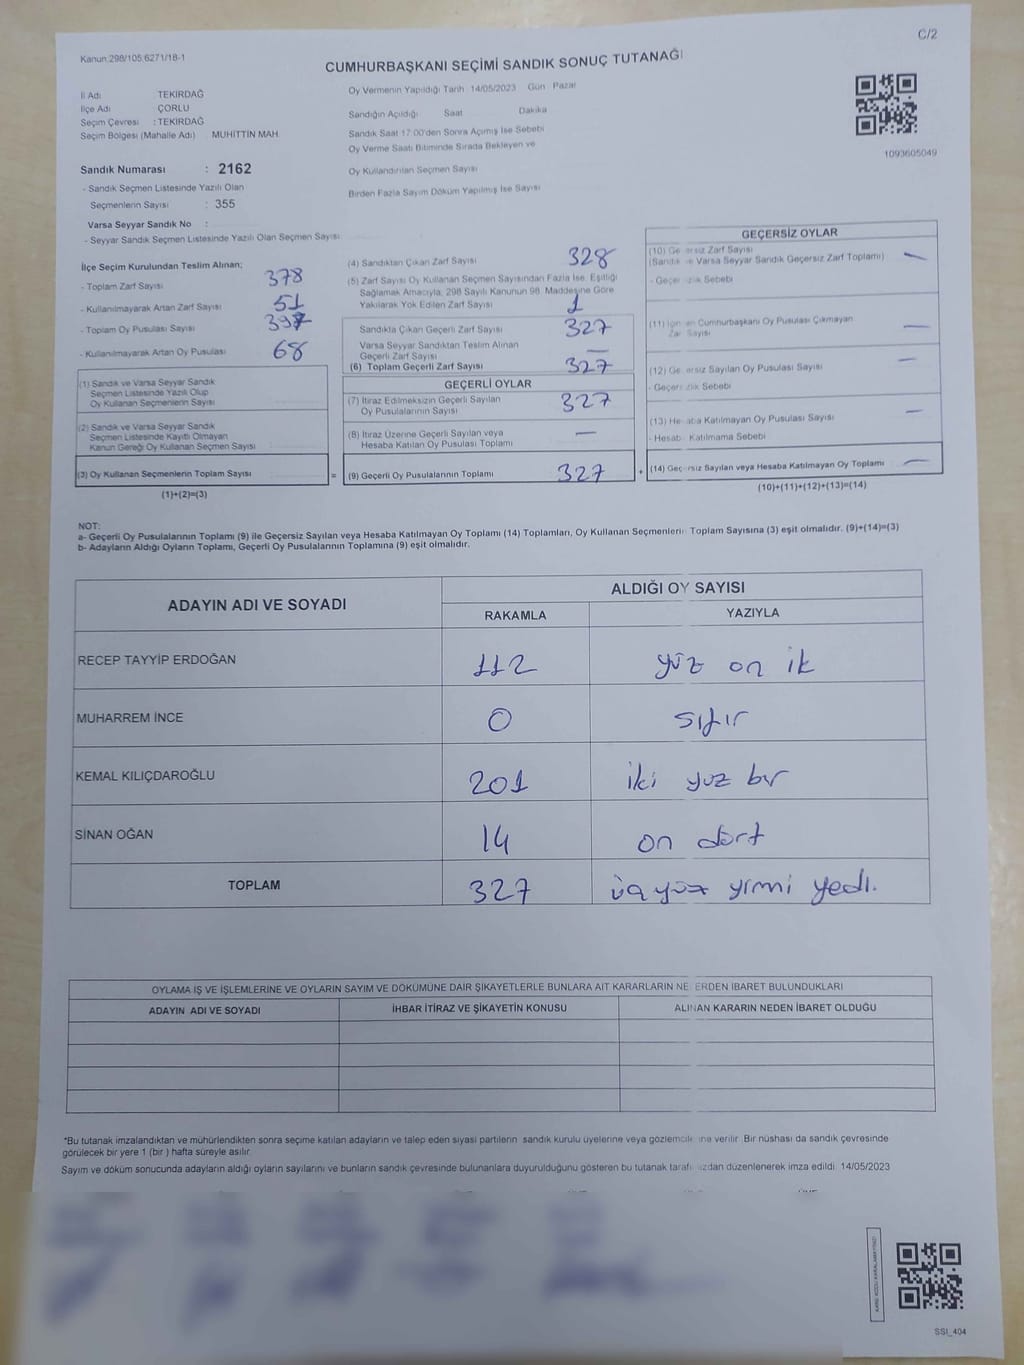 C/2
Kanun:298/105.6271/18-1
CUMHURBAŞKANI SEÇİMİ SANDIK SONUÇ TUTANAĞI
İl Adı TEKİRDAĞ
İlçe Adı ÇORLU
Seçim Çevresi : TEKİRDAĞ
Seçim Bölgesi (Mahalle Adı) MUHİTTİN MAH.
Oy Vermenin Yapıldığı Tarih 14/05/2023 Gün Pazar
Sandığın Açıldığı Saat Dakika
Sandık Saat 17:00'den Sonra Açılmış İse Sebebi
Oy Verme Saati Bitiminde Sırada Bekleyen ve
Oy Kullandırılan Seçmen Sayısı
Birden Fazla Sayım Döküm Yapılmış İse Sayısı
1093605049
Sandık Numarası : 2162
- Sandık Seçmen Listesinde Yazılı Olan
Seçmenlerin Sayısı : 355
Varsa Seyyar Sandık No :
- Seyyar Sandık Seçmen Listesinde Yazılı Olan Seçmen Sayısı
İlçe Seçim Kurulundan Teslim Alınan;
- Toplam Zarf Sayısı 378
- Kullanılmayarak Artan Zarf Sayısı 51
- Toplam Oy Pusulası Sayısı 397
- Kullanılmayarak Artan Oy Pusulası 68
(1) Sandık ve Varsa Seyyar Sandık
Seçmen Listesinde Yazılı Olup
Oy Kullanan Seçmenlerin Sayısı
(2) Sandık ve Varsa Seyyar Sandık
Seçmen Listesinde Kayıtlı Olmayan
Kanun Gereği Oy Kullanan Seçmen Sayısı
(3) Oy Kullanan Seçmenlerin Toplam Sayısı =
(1)+(2)=(3)
(4) Sandıktan Çıkan Zarf Sayısı 328
(5) Zarf Sayısı Oy Kullanan Seçmen Sayısından Fazla İse, Eşitliği
Sağlamak Amacıyla, 298 Sayılı Kanunun 98. Maddesine Göre
Yakılarak Yok Edilen Zarf Sayısı 1
Sandıkta Çıkan Geçerli Zarf Sayısı 327
Varsa Seyyar Sandıktan Teslim Alınan
Geçerli Zarf Sayısı —
(6) Toplam Geçerli Zarf Sayısı 327
GEÇERLİ OYLAR
(7) İtiraz Edilmeksizin Geçerli Sayılan
Oy Pusulalarının Sayısı 327
(8) İtiraz Üzerine Geçerli Sayılan veya
Hesaba Katılan Oy Pusulası Toplamı —
(9) Geçerli Oy Pusulalarının Toplamı 327 +
GEÇERSİZ OYLAR
(10) Geçersiz Zarf Sayısı
(Sandık ve Varsa Seyyar Sandık Geçersiz Zarf Toplamı) —
- Geçersizlik Sebebi
(11) İçinden Cumhurbaşkanı Oy Pusulası Çıkmayan
Zarf Sayısı —
(12) Geçersiz Sayılan Oy Pusulası Sayısı —
- Geçersizlik Sebebi
(13) Hesaba Katılmayan Oy Pusulası Sayısı —
- Hesaba Katılmama Sebebi
(14) Geçersiz Sayılan veya Hesaba Katılmayan Oy Toplamı —
(10)+(11)+(12)+(13)=(14)
NOT:
a- Geçerli Oy Pusulalarının Toplamı (9) ile Geçersiz Sayılan veya Hesaba Katılmayan Oy Toplamı (14) Toplamları, Oy Kullanan Seçmenlerin Toplam Sayısına (3) eşit olmalıdır. (9)+(14)=(3)
b- Adayların Aldığı Oyların Toplamı, Geçerli Oy Pusulalarının Toplamına (9) eşit olmalıdır.
ADAYIN ADI VE SOYADI ALDIĞI OY SAYISI
RAKAMLA YAZIYLA
RECEP TAYYİP ERDOĞAN 112 yüz on ik
MUHARREM İNCE 0 sıfır
KEMAL KILIÇDAROĞLU 201 iki yuz bir
SİNAN OĞAN 14 on dört
TOPLAM 327 üçyüz yirmi yedi.
OYLAMA İŞ VE İŞLEMLERİNE VE OYLARIN SAYIM VE DÖKÜMÜNE DAİR ŞİKAYETLERLE BUNLARA AİT KARARLARIN NELERDEN İBARET BULUNDUKLARI
ADAYIN ADI VE SOYADI İHBAR İTİRAZ VE ŞİKAYETİN KONUSU ALINAN KARARIN NEDEN İBARET OLDUĞU
*Bu tutanak imzalandıktan ve mühürlendikten sonra seçime katılan adayların ve talep eden siyasi partilerin sandık kurulu üyelerine veya gözlemcilerine verilir. Bir nüshası da sandık çevresinde
görülecek bir yere 1 (bir ) hafta süreyle asılır.
Sayım ve döküm sonucunda adayların aldığı oyların sayılarını ve bunların sandık çevresinde bulunanlara duyurulduğunu gösteren bu tutanak tarafımızdan düzenlenerek imza edildi. 14/05/2023
KARE KODU KARALAMAYINIZ!
SSI_404